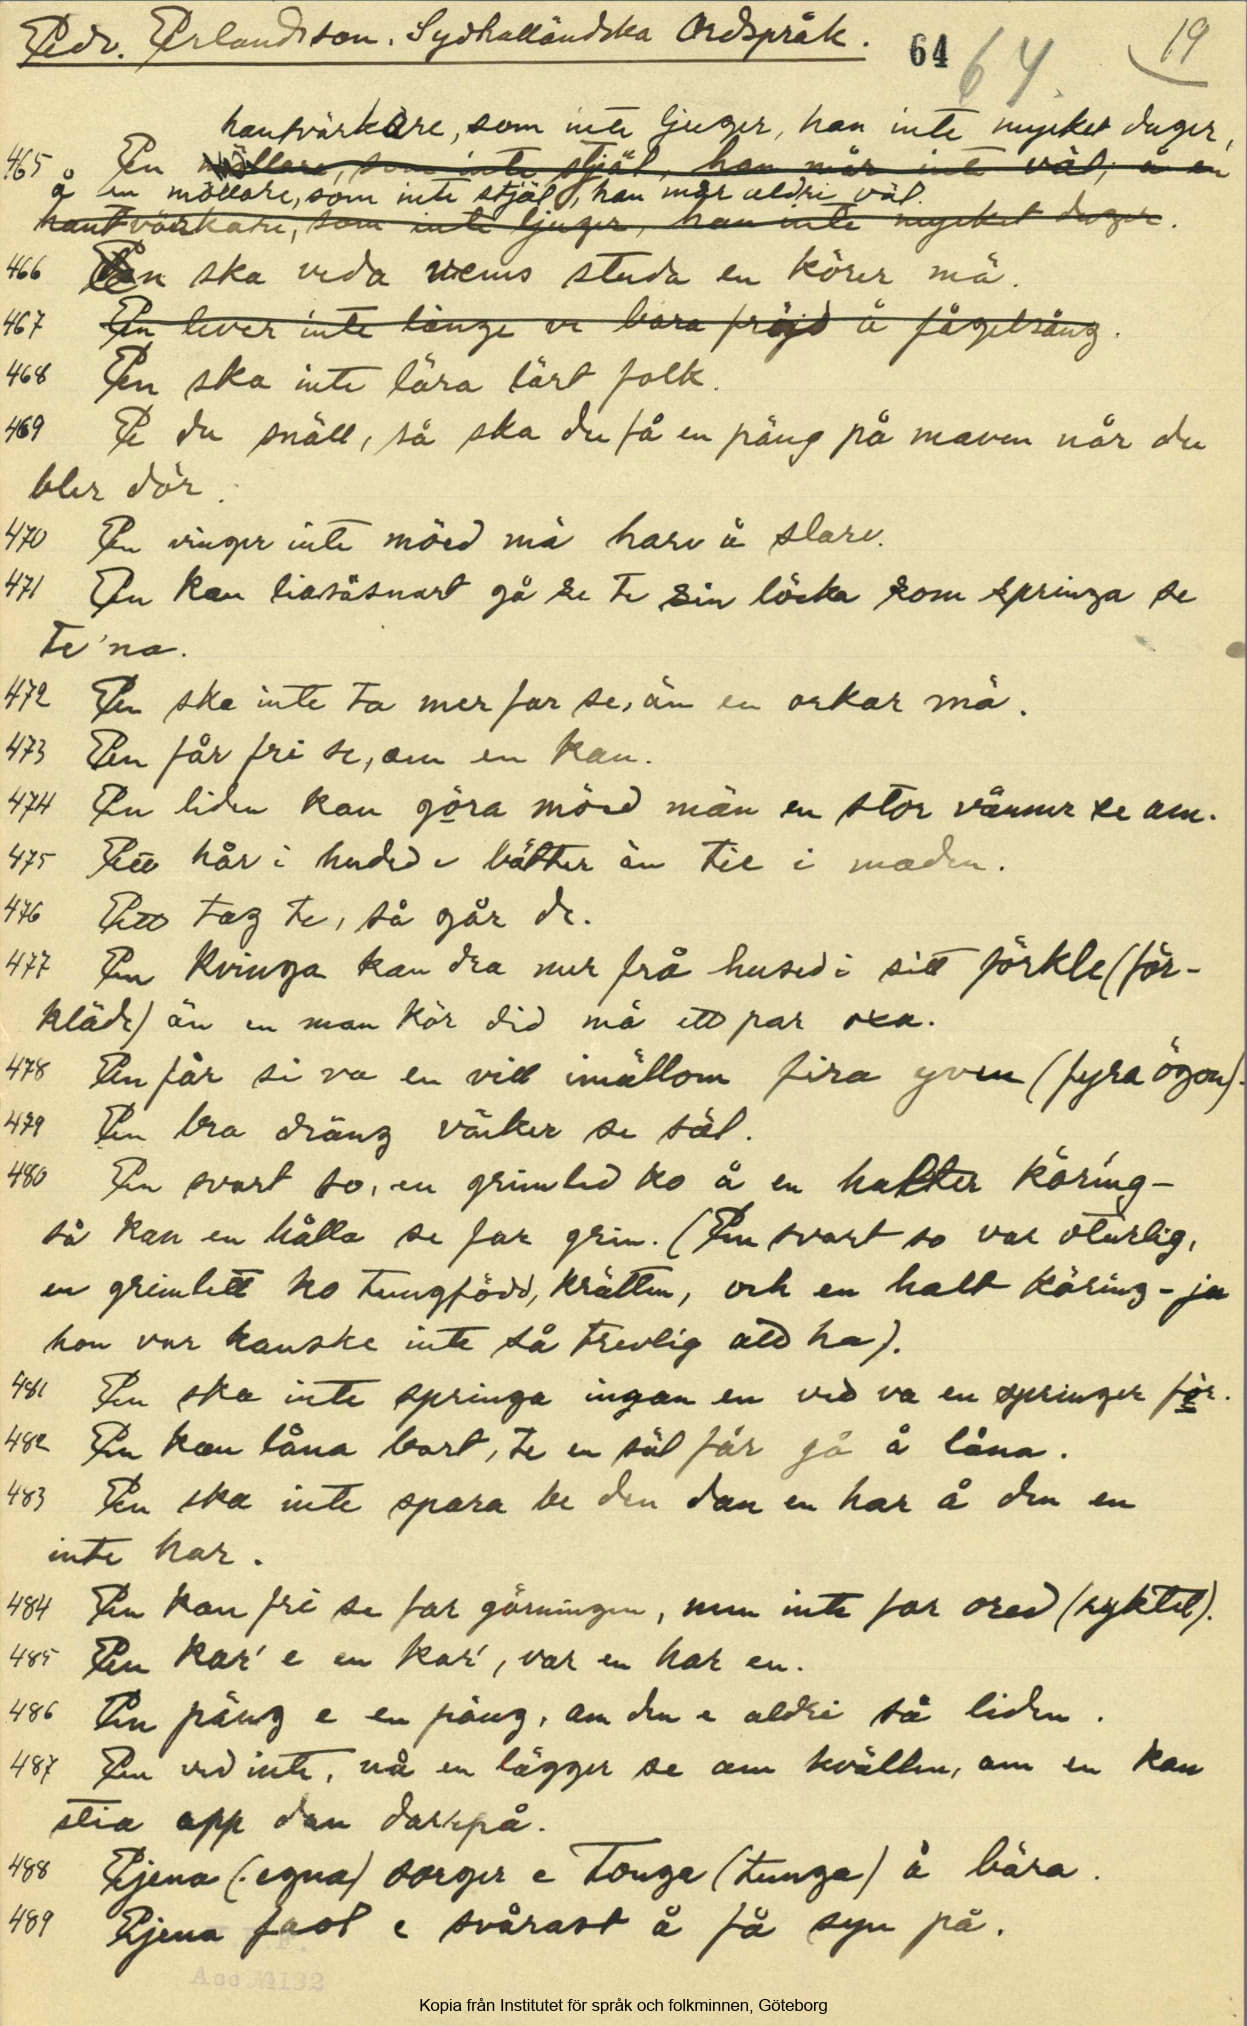 Edv. Erlandsson. Sydhalländska Ordspråk.
64 64. 19
hantvärkare, som inte ljuger, han inte mycket duger,
465 En möllare, som inte stjäl, han mår inte väl, å en
å en möllare, som inte stjäl, han mår aldri väl.
hantvärkare, som inte ljuger, han inte mycket duger.
466 En ska veda vems studa en körer mä.
467 En lever inte länge ve bara fröjd å fågelsång.
468 En ska inte lära lärt folk.
469 E du snäll, så ska du få en päng på maven når du
bler dör.
470 En vinger inte möed mä harv å slarv.
471 En kan liasåsnart gå se te sin löcka som springa se
te'na.
472 En ska inte ta mer far se, än en orkar mä.
473 En får fri se, am en kan.
474 En liden kan göra möed män en stor vänner se am.
475 Ett hår i huded e bätter än tie i maden.
476 Ett tag te, så går de.
477 En kvinga kan dra mer frå hused i sitt förkle (för-
kläde) än en man kör did må ett par oxa.
478 En får si va en vill imällom fira yven (fyra ögon).
479 En bra dräng värker se säl.
480 En svart so, en grimled ko å en halter käring -
så kan en hålla se far grin. (En svart so var oturlig,
en grimlett ko tungfödd, krätten, och en halt käring - ja
hon var kanske inte så trevlig att ha).
481 En ska inte springa ingan en ved va en springer för.
482 En kan låna bort, te en säl får gå å låna.
483 En ska inte spara be den dan en har å den en
inte har.
484 En kan fri se far gärningen, men inte far ored (ryktet).
485 En kar' e en kar', var en har en.
486 En päng e en päng, am den e aldri så liden.
487 En ved inte, nå en lägger se am kvällen, am en kan
stia app dan darpå.
488 Ejena (: egna) sorger e tonga (tunga) å bära.
489 Ejena faol e svårast å få syn på.
Acc № 132
Kopia från Institutet för språk och folkminnen, Göteborg